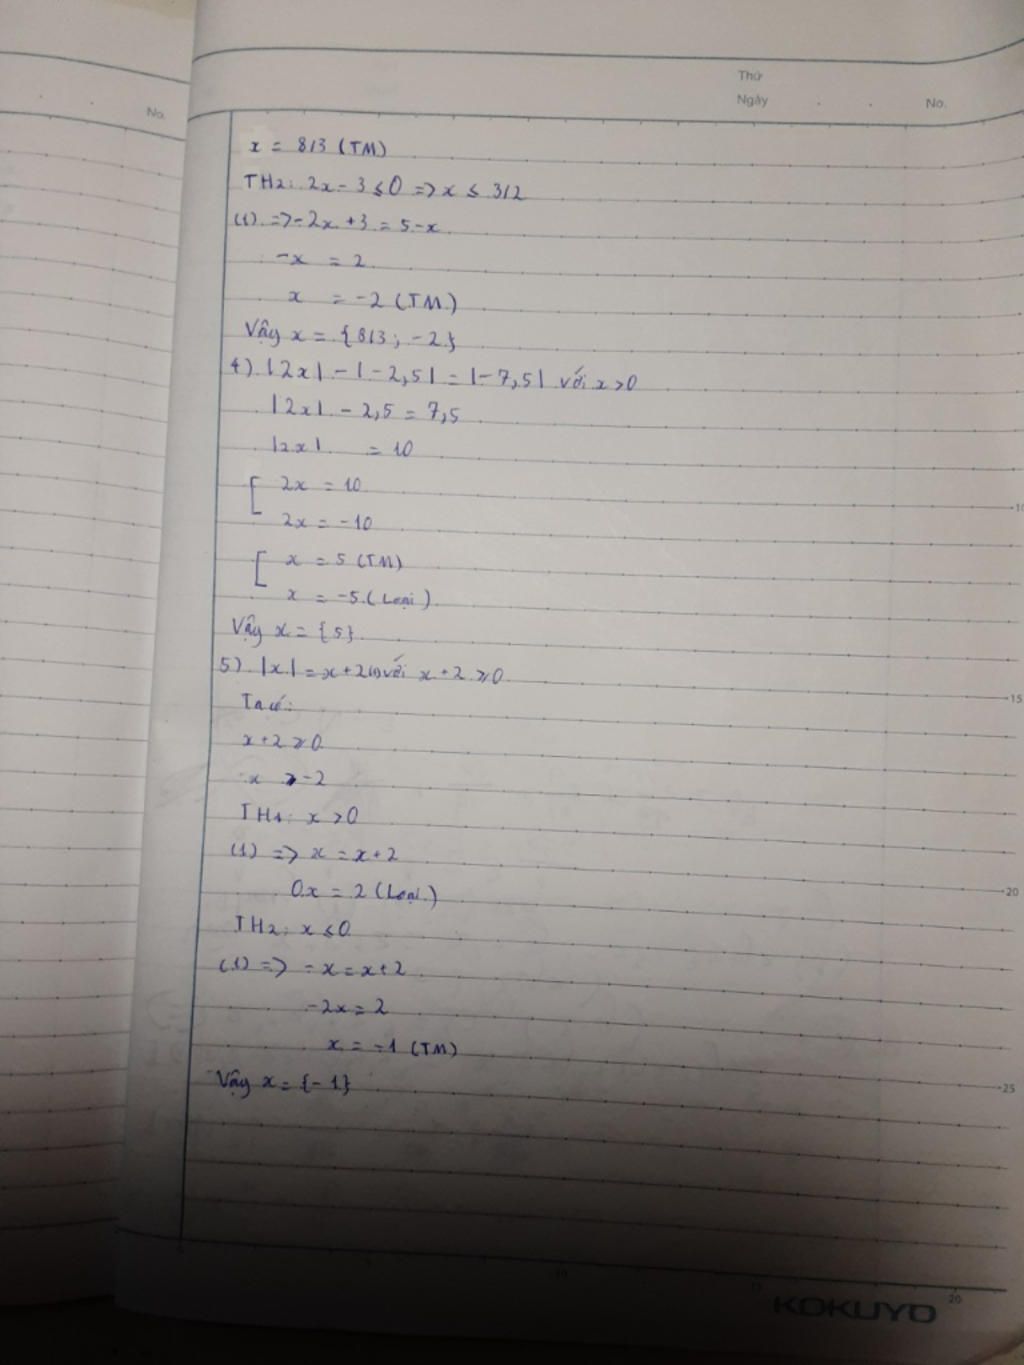 No.
Thứ
Ngày . . No.
x = 8/3 (TM)
TH2: 2x - 3 ≤ 0 => x ≤ 3/2
(1) => -2x + 3 = 5 - x
-x = 2
x = -2 (TM)
Vậy x = {8/3; -2}
4) |2x| - |-2,5| = |-7,5| với x > 0
|2x| - 2,5 = 7,5
|2x| = 10
[ 2x = 10
2x = -10
10
[ x = 5 (TM)
x = -5 (Loại)
Vậy x = {5}
5) |x| = x + 2 (1) với x + 2 ≥ 0
15
Ta có:
x + 2 ≥ 0
x ≥ -2
TH1: x > 0
(1) => x = x + 2
0x = 2 (Loại)
20
TH2: x ≤ 0
(1) => -x = x + 2
-2x = 2
x = -1 (TM)
Vậy x = {-1}
25
10 15 20
KOKUYO